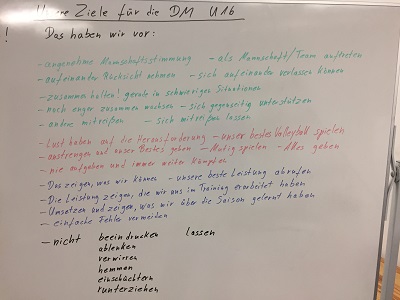 Unsere Ziele für die DM U16
! Das haben wir vor:
- angenehme Mannschaftsstimmung - als Mannschaft/Team auftreten
- aufeinander Rücksicht nehmen - sich aufeinander verlassen können
- zusammen halten! gerade in schwierigen Situationen
- noch enger zusammen wachsen - sich gegenseitig unterstützen
- andere mitreißen - sich mitreißen lassen
- Lust haben auf die Herausforderung - unser bestes Volleyball spielen
- anstrengen und unser Bestes geben - Mutig spielen - Alles geben
- nie aufgeben und immer weiter kämpfen
- Das zeigen, was wir können - unsere beste Leistung abrufen
- Die Leistung zeigen, die wir uns im Training erarbeitet haben
- Umsetzen und zeigen, was wir über die Saison gelernt haben
- einfache Fehler vermeiden
- nicht beeindrucken lassen
ablenken
verwirren
hemmen
einschüchtern
runterziehen